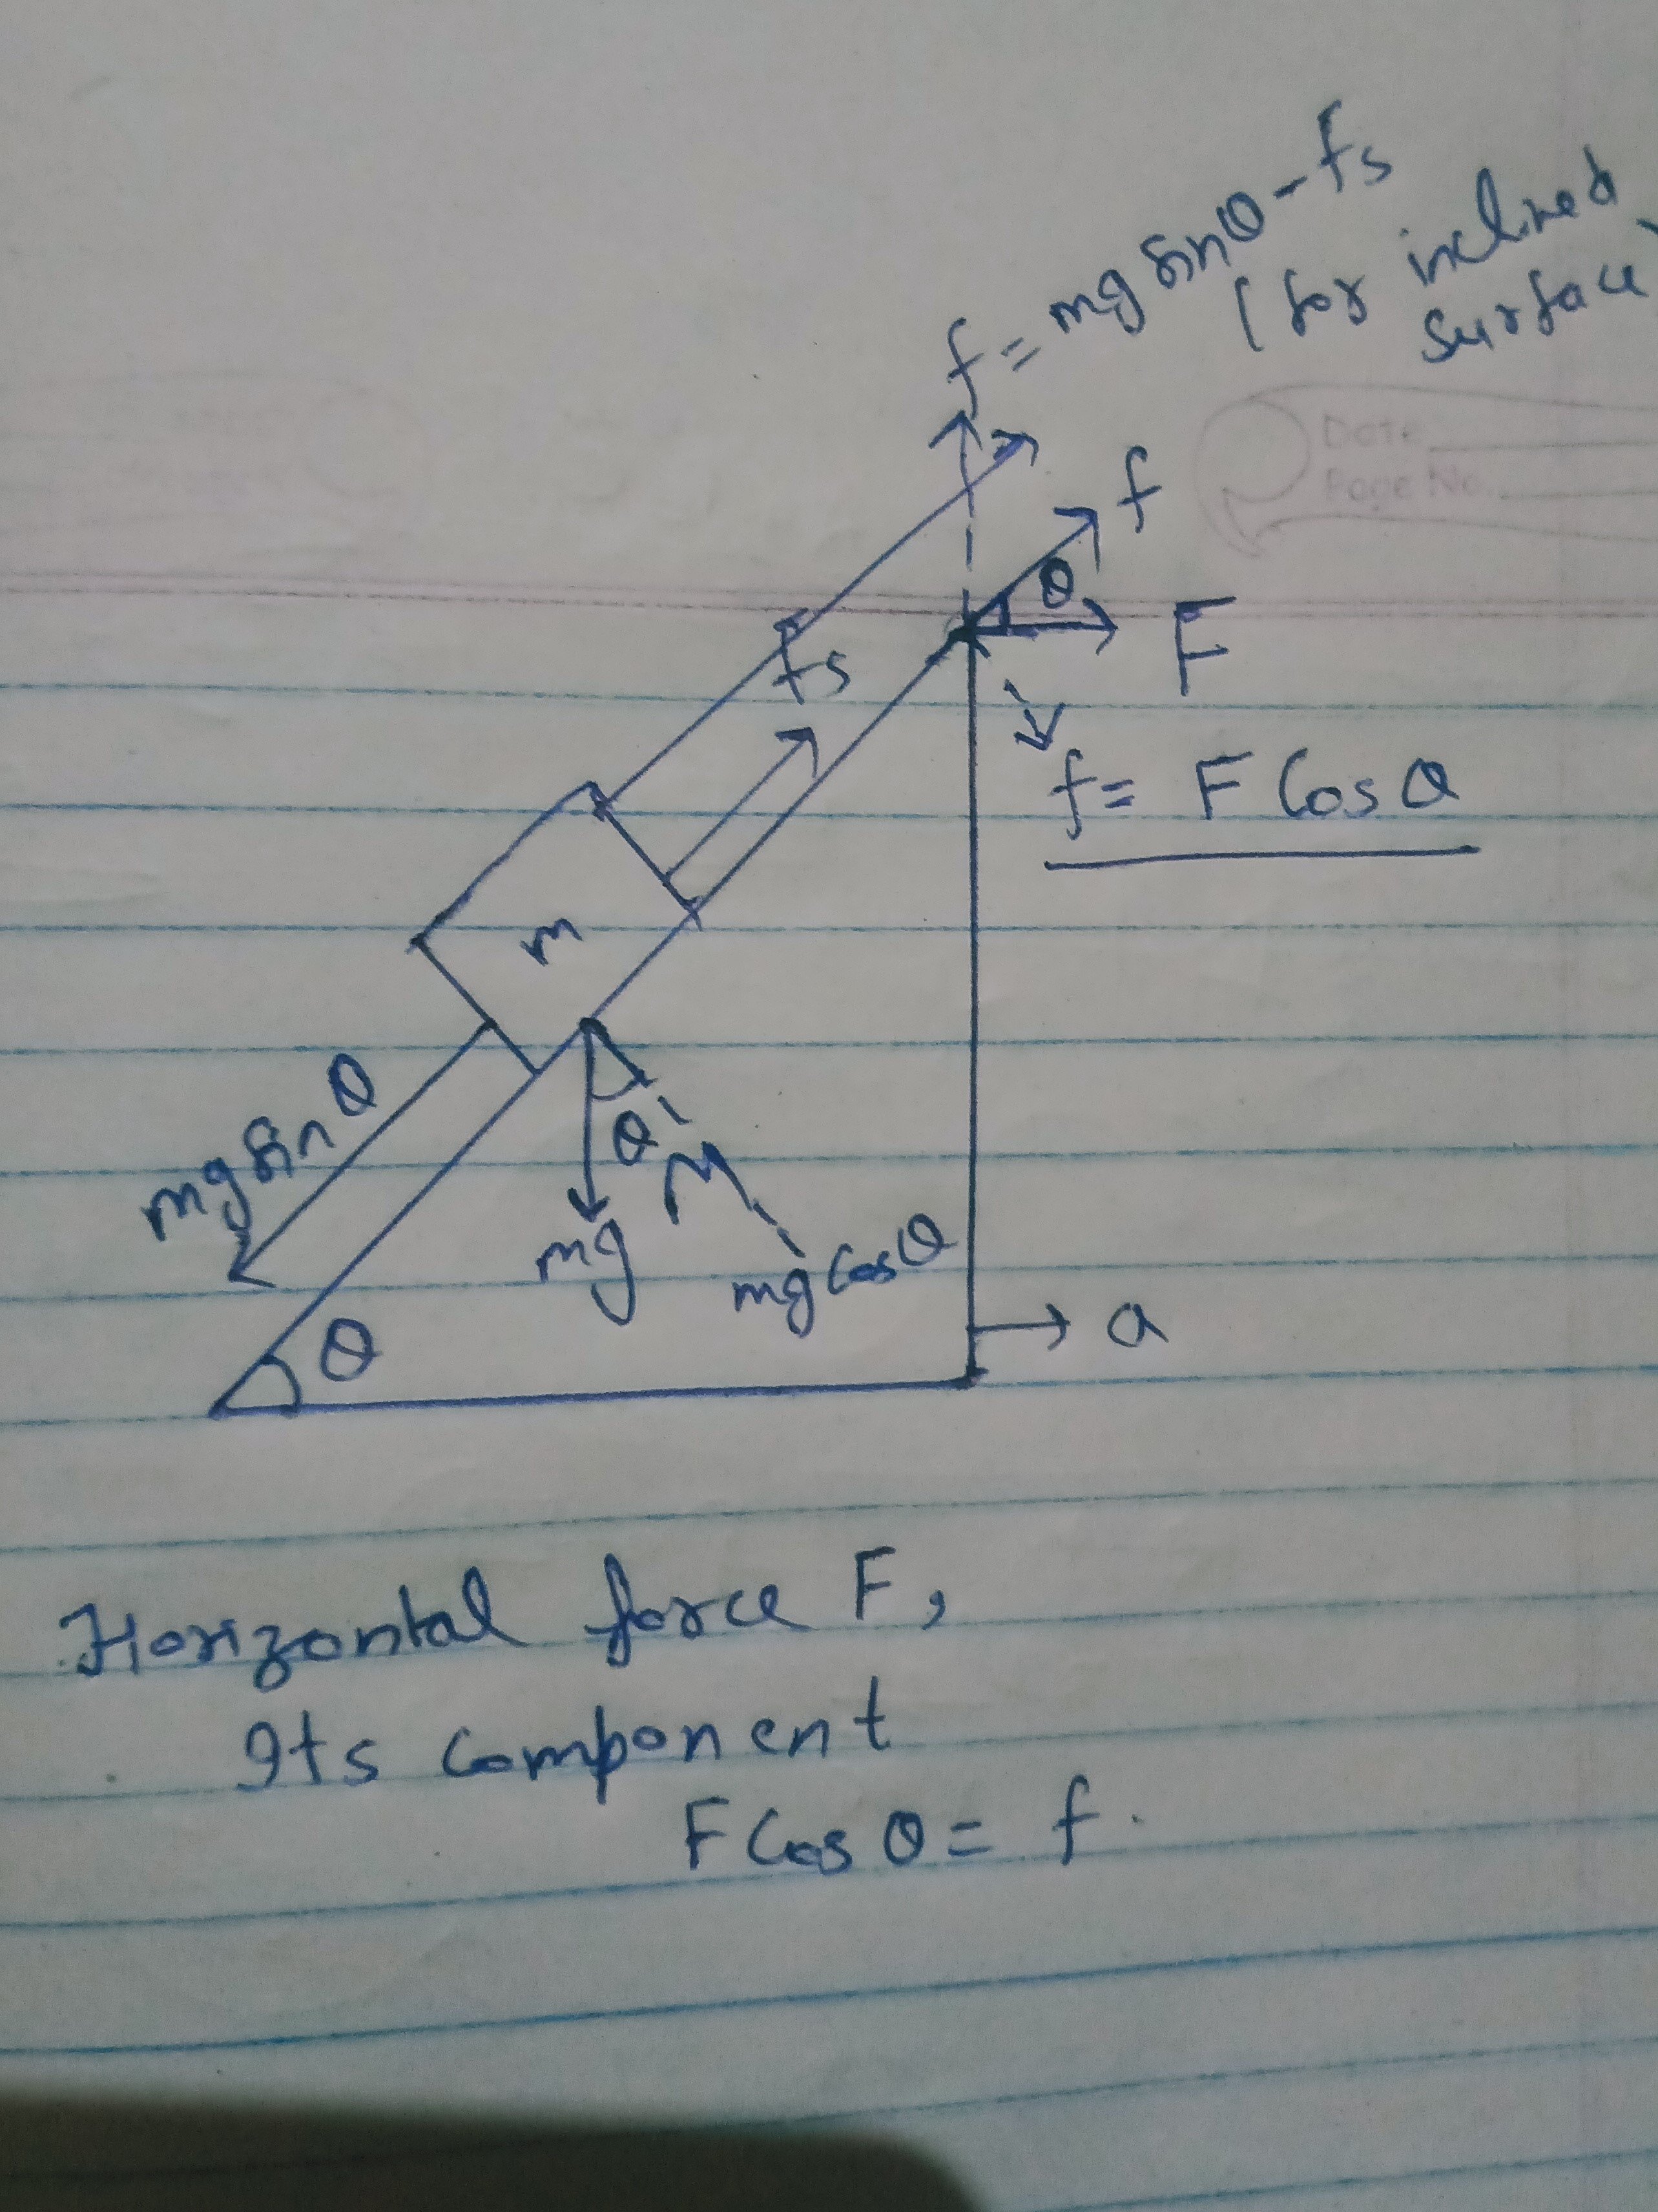 f = mg sinθ - fs
(for inclined
surface)
Date
Page No.
f
θ
F
fs
f = F Cosθ
m
mg sinθ
θ
M
mg
mg cosθ
θ
a
Horizontal force F,
Its component
F Cos θ = f.